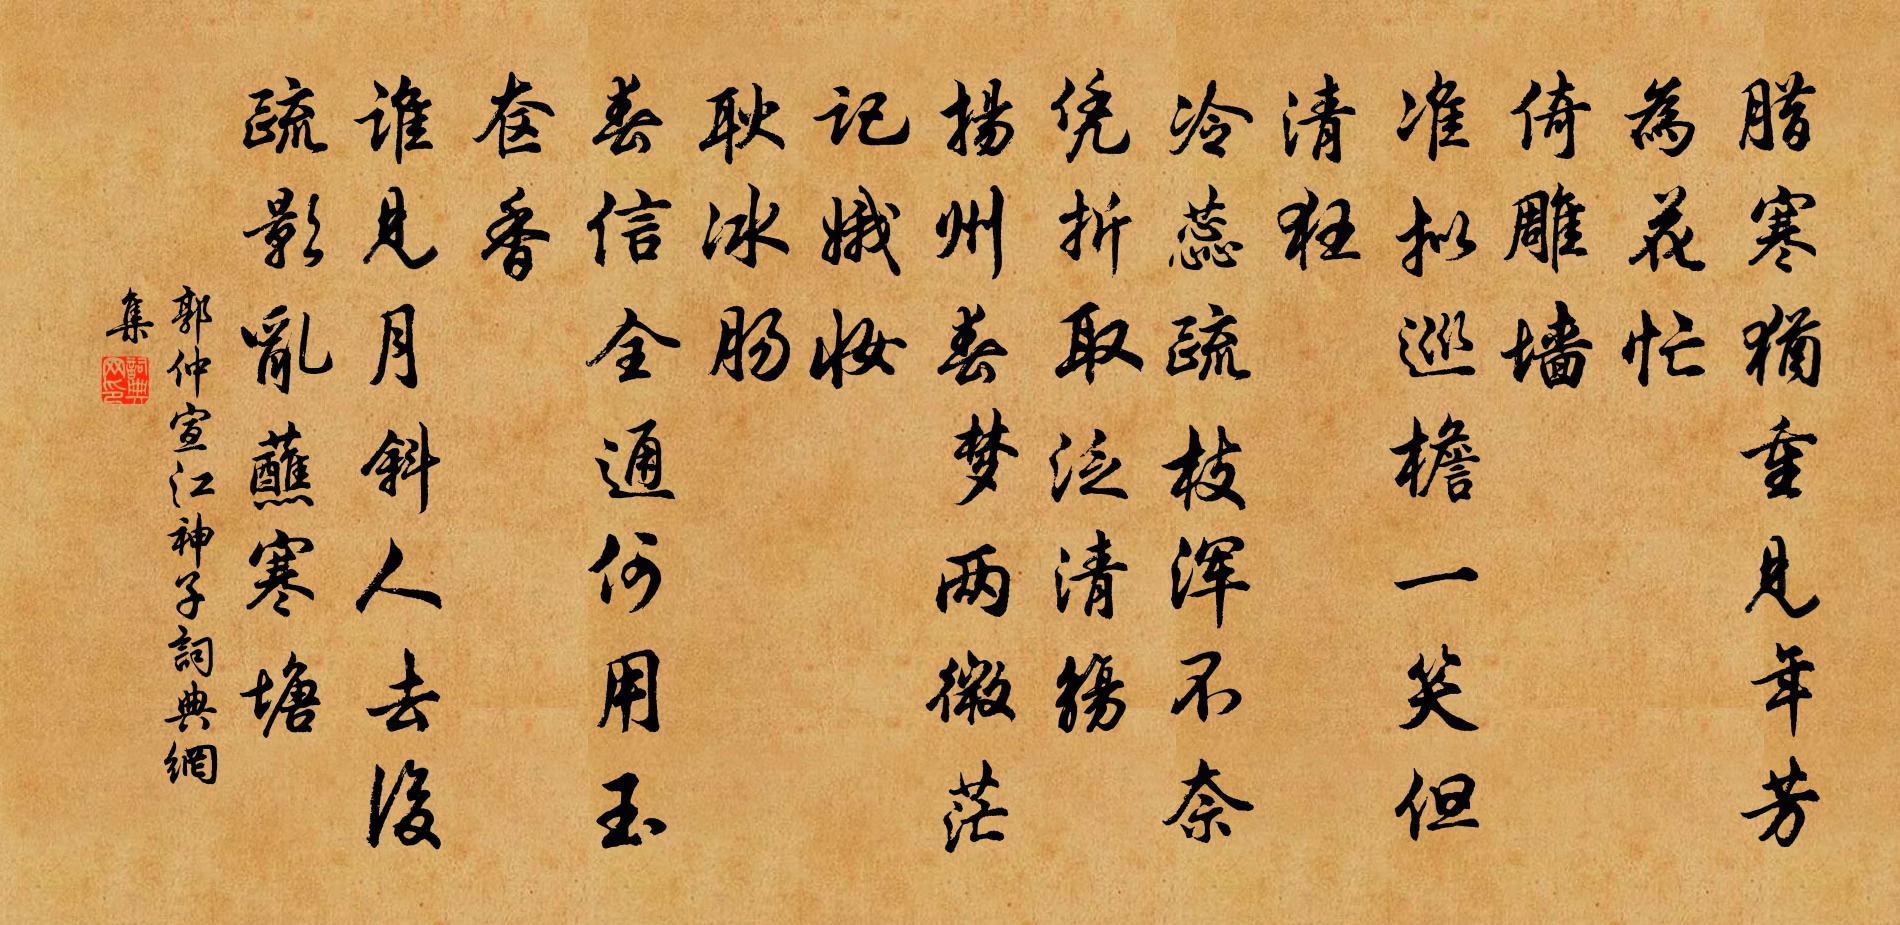 腊寒犹重见年芳
為花忙
倚雕墙
准拟巡檐一笑但
清狂
冷蕊疏枝浑不奈
凭折取泛清觞
揚州春梦两微茫
记娥妆
耿冰肠
春信全通何用玉
奁香
谁见月斜人去後
疏影亂蘸寒塘
郭仲宣江神子詞典網
集
詞典網印